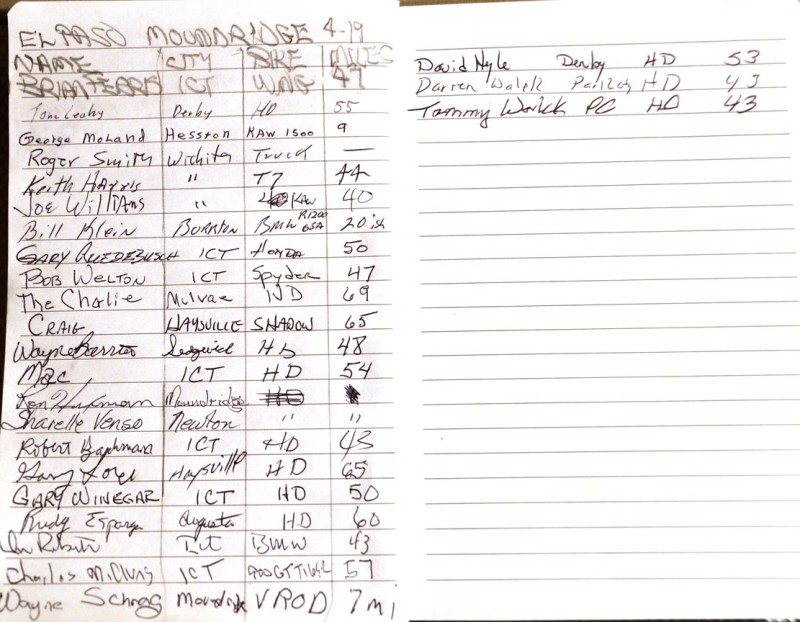 EL PASO MOUNDRIDGE 4-19
NAME CITY BIKE MILES
BRIAN FERRIS ICT WING 47
Tom Leahy Derby HD 55
George Moland Hesston KAW 1500 9
Roger Smith Wichita Truck —
Keith Harris " T7 44
Joe Willians " KAW 40
Bill Klein Burrton BMW R1200 GSA 20 ish
Gary Quedebusch ICT Honda 50
Bob Welton ICT Spyder 47
The Charlie Mulvae 69
CRAIG HAYSVILLE SHADOW 65
Wayne Barrier Sedgwick HD 48
Mac ICT HD 54
Ron Moundridge
Sharelle Venso Newton " "
Robert Bachmann ICT HD 43
Gary Haysville HD 65
GARY WINEGAR ICT HD 50
Rudy Esparza Augusta HD 60
BMW 43
Charles McClung ICT 57
Wayne Schrag VROD 7 mi
David Nyle Derby HD 53
Darren HD 43
Tammy PC HD 43